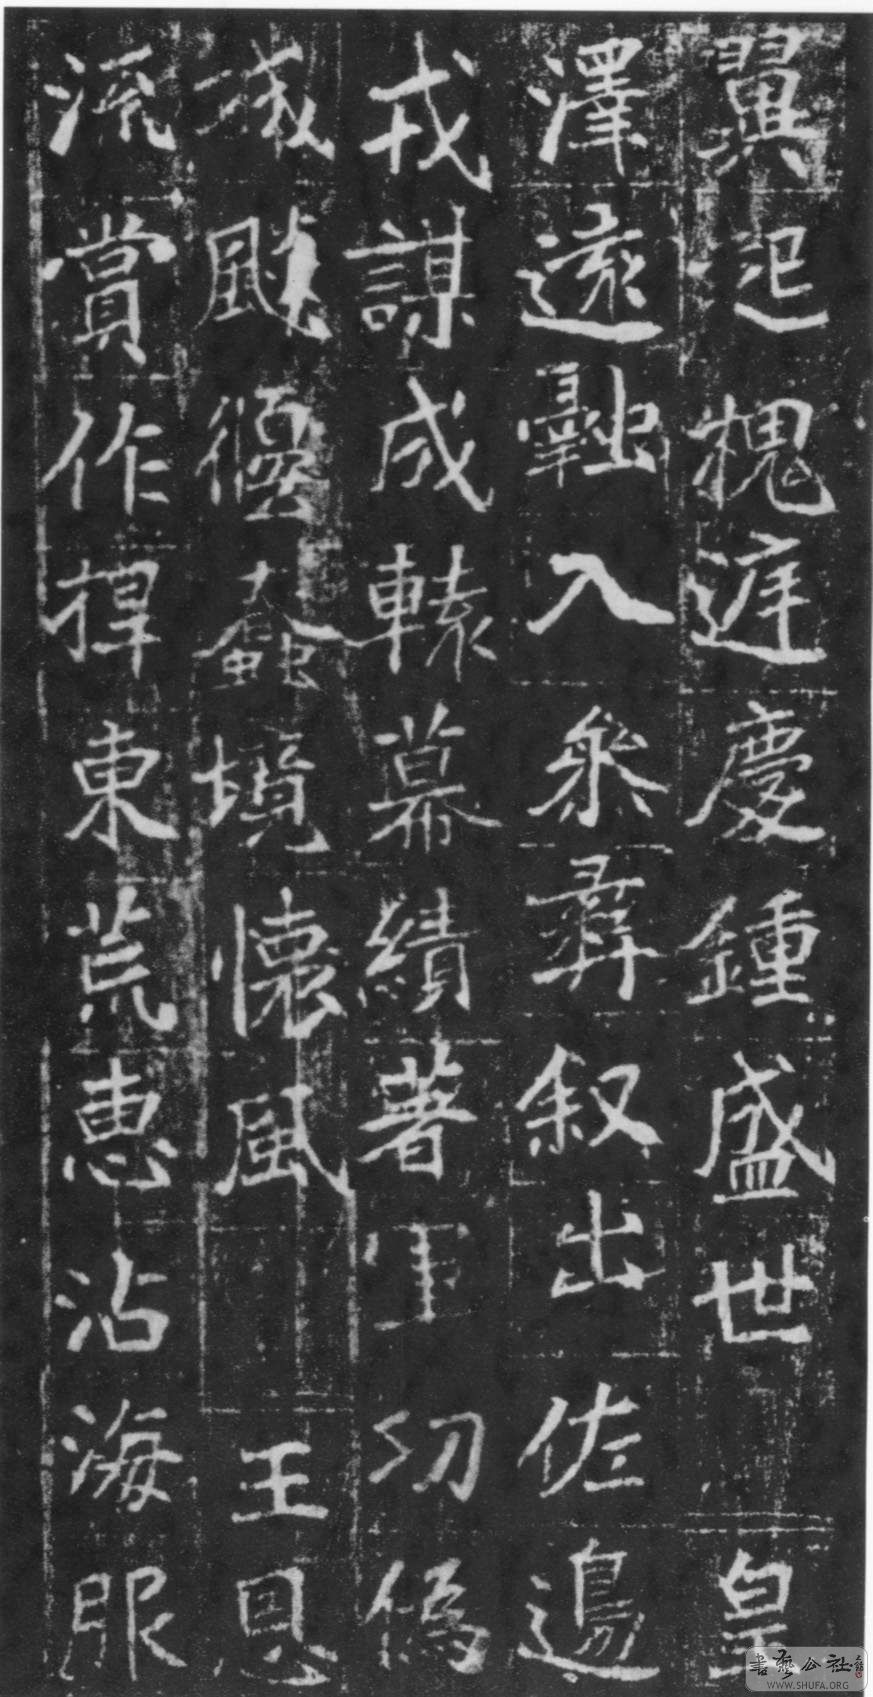 翼起槐庭慶鍾盛世皇
澤遠入參彝叙出佐邊
戎謀成轅幕績著軍功偽
城颷偃蠢境懷風王恩
流賞作捍東荒惠沾海服
書藝公社
WWW.SHUFA.ORG